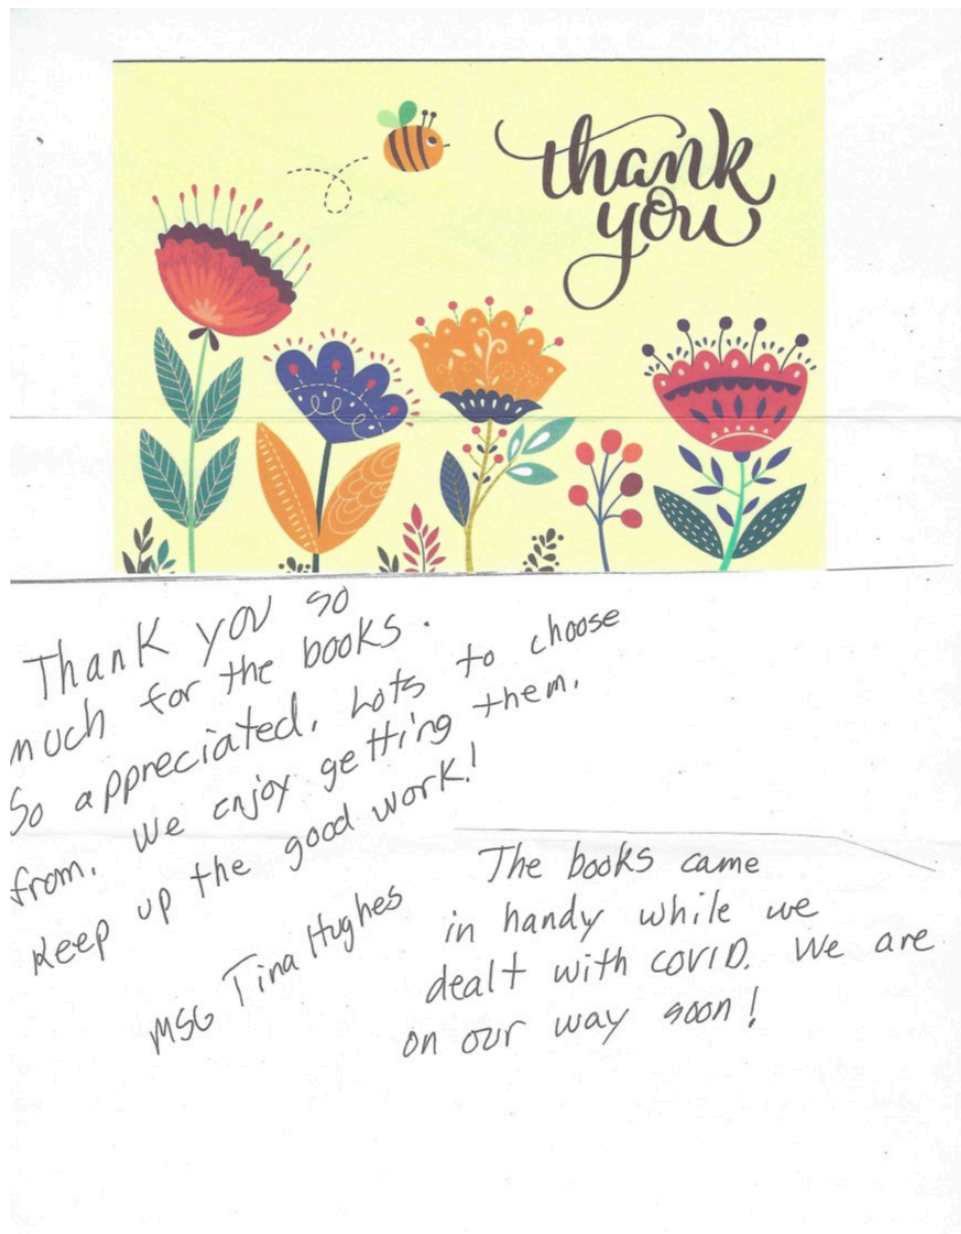 thank
you
Thank you so
much for the books.
So appreciated. Lots to choose
from. We enjoy getting them.
Keep up the good work!
MSG Tina Hughes
The books came
in handy while we
dealt with COVID. We are
on our way soon!